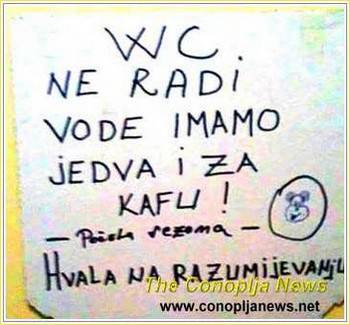 WC.
NE RADI
VODE IMAMO
JEDVA I ZA
KAFU!
HVALA NA RAZUMIJEVANJU
The Conoplja News
www.conopljanews.net